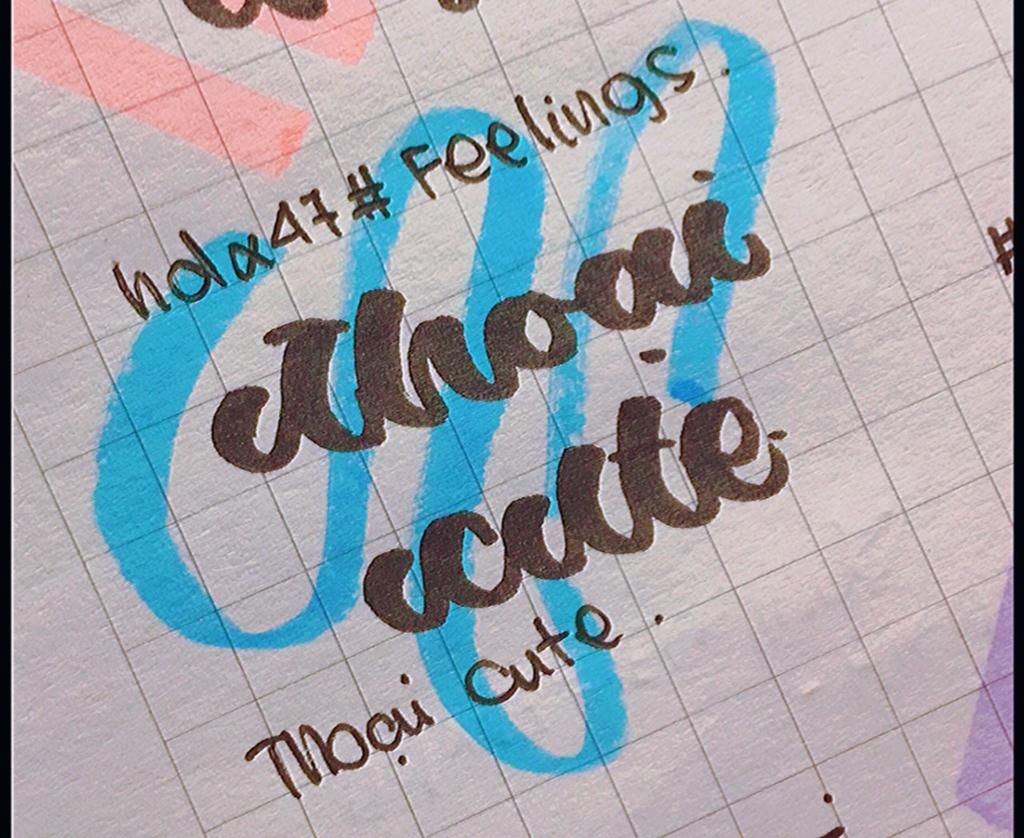 hola47# Feelings.
Thoại
cute.
Thoại cute.